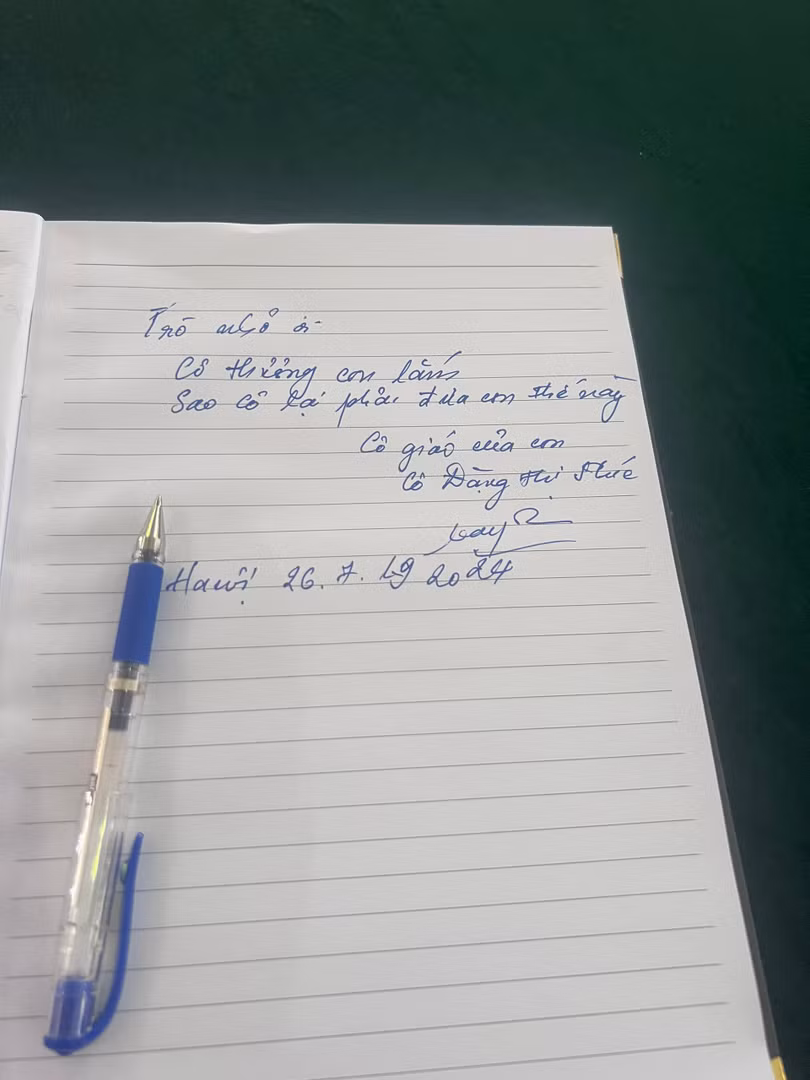 Trò nhỏ ơi
Cô thương con lắm
Sao cô lại phải đưa con thế này
Cô giáo của con
Cô Đặng Thị Phúc
Hà Nội 26. 7. 2024